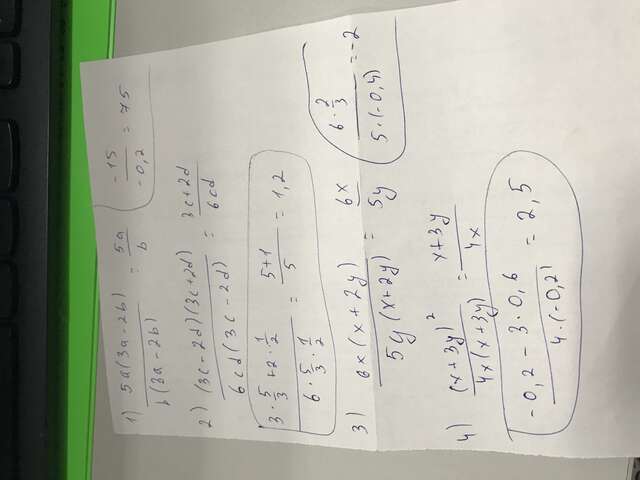 1) 5a(3a-2b) / b(3a-2b) = 5a / b
-15 / -0,2 = 75
2) (3c-2d)(3c+2d) / 6cd(3c-2d) = 3c+2d / 6cd
3·5/3+2·1/2 / 6·5/3·1/2 = 5+1 / 5 = 1,2
3) 6x(x+2y) / 5y(x+2y) = 6x / 5y
6·2/3 / 5·(-0,4) = -2
4) (x+3y)² / 4x(x+3y) = x+3y / 4x
-0,2-3·0,6 / 4·(-0,2) = 2,5